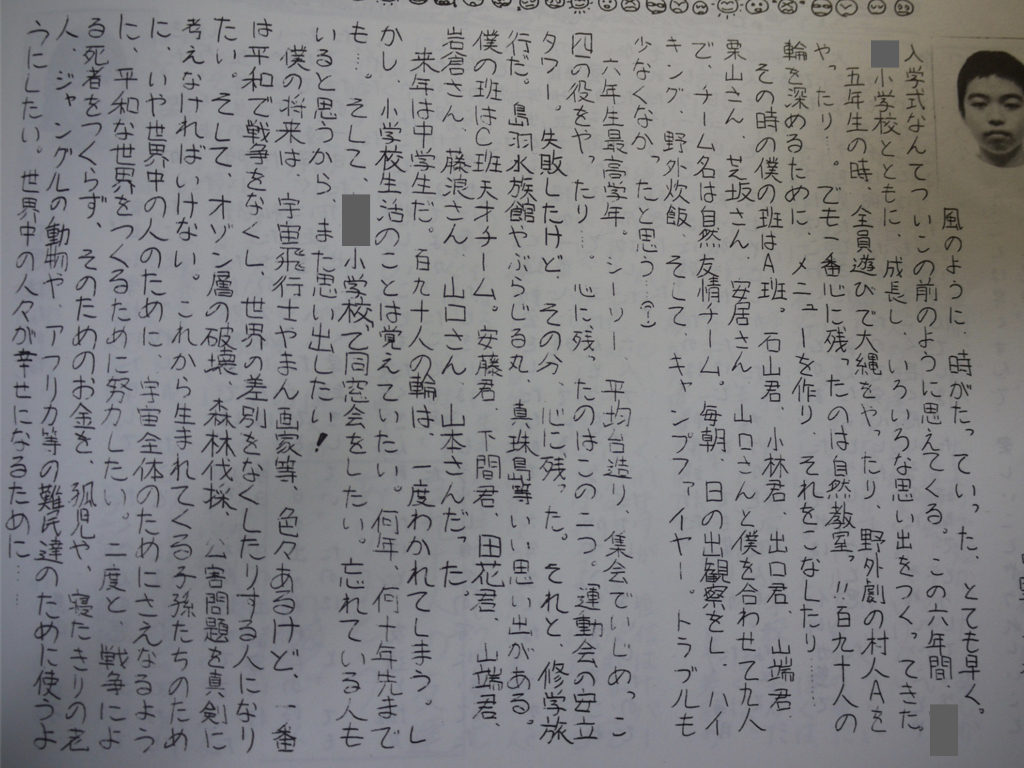 風のように、時がたっていった、とても早く。
入学式なんてついこの前のように思えてくる。この六年間、
小学校とともに、成長し、いろいろな思い出をつくってきた。
五年生の時、全員遊びで大縄をやったり、野外劇の村人Aを
やったり…。でも一番心に残ったのは自然教室っ!!百九十人の
輪を深めるために、メニューを作り、それをこなしたり……
その時の僕の班はA班。石山君、小林君、出口君、山端君、
栗山さん、芝坂さん、安居さん、山口さんと僕を合わせて九人
で、チーム名は自然友情チーム。毎朝、日の出観察をし、ハイ
キング、野外炊飯、そして、キャンプファイヤー。トラブルも
少なくなかったと思う…
六年生最高学年。シーソー、平均台造り、集会でいじめっこ
四の役をやったり…。心に残ったのはこの二つ。運動会の安立
タワー。失敗したけど、その分、心に残った。それと、修学旅
行だ。鳥羽水族館やぶらじる丸、真珠島等いい思い出がある。
僕の班はC班天才チーム。安藤君、下間君、田花君、山端君、
岩倉さん、藤浪さん、山口さん、山本さんだった。
来年は中学生だ。百九十人の輪は、一度わかれてしまう。し
かし、小学校生活のことは覚えていたい。何年、何十年先まで
も…。そして、小学校で同窓会をしたい。忘れている人も
いると思うから、また思い出したい!
僕の将来は、宇宙飛行士やまん画家等、色々あるけど、一番
は平和で戦争をなくし、世界の差別をなくしたりする人になり
たい。そして、オゾン層の破壊、森林伐採、公害問題を真剣に
考えなければいけない。これから生まれてくる子孫たちのため
に、いや世界中の人のために、宇宙全体のためにさえなるよう
に、平和な世界をつくるために努力したい。二度と、戦争によ
る死者をつくらず、そのためのお金を、孤児や、寝たきりの老
人、ジャングルの動物や、アフリカ等の難民達のために使うよ
うにしたい。世界中の人々が幸せになるために……